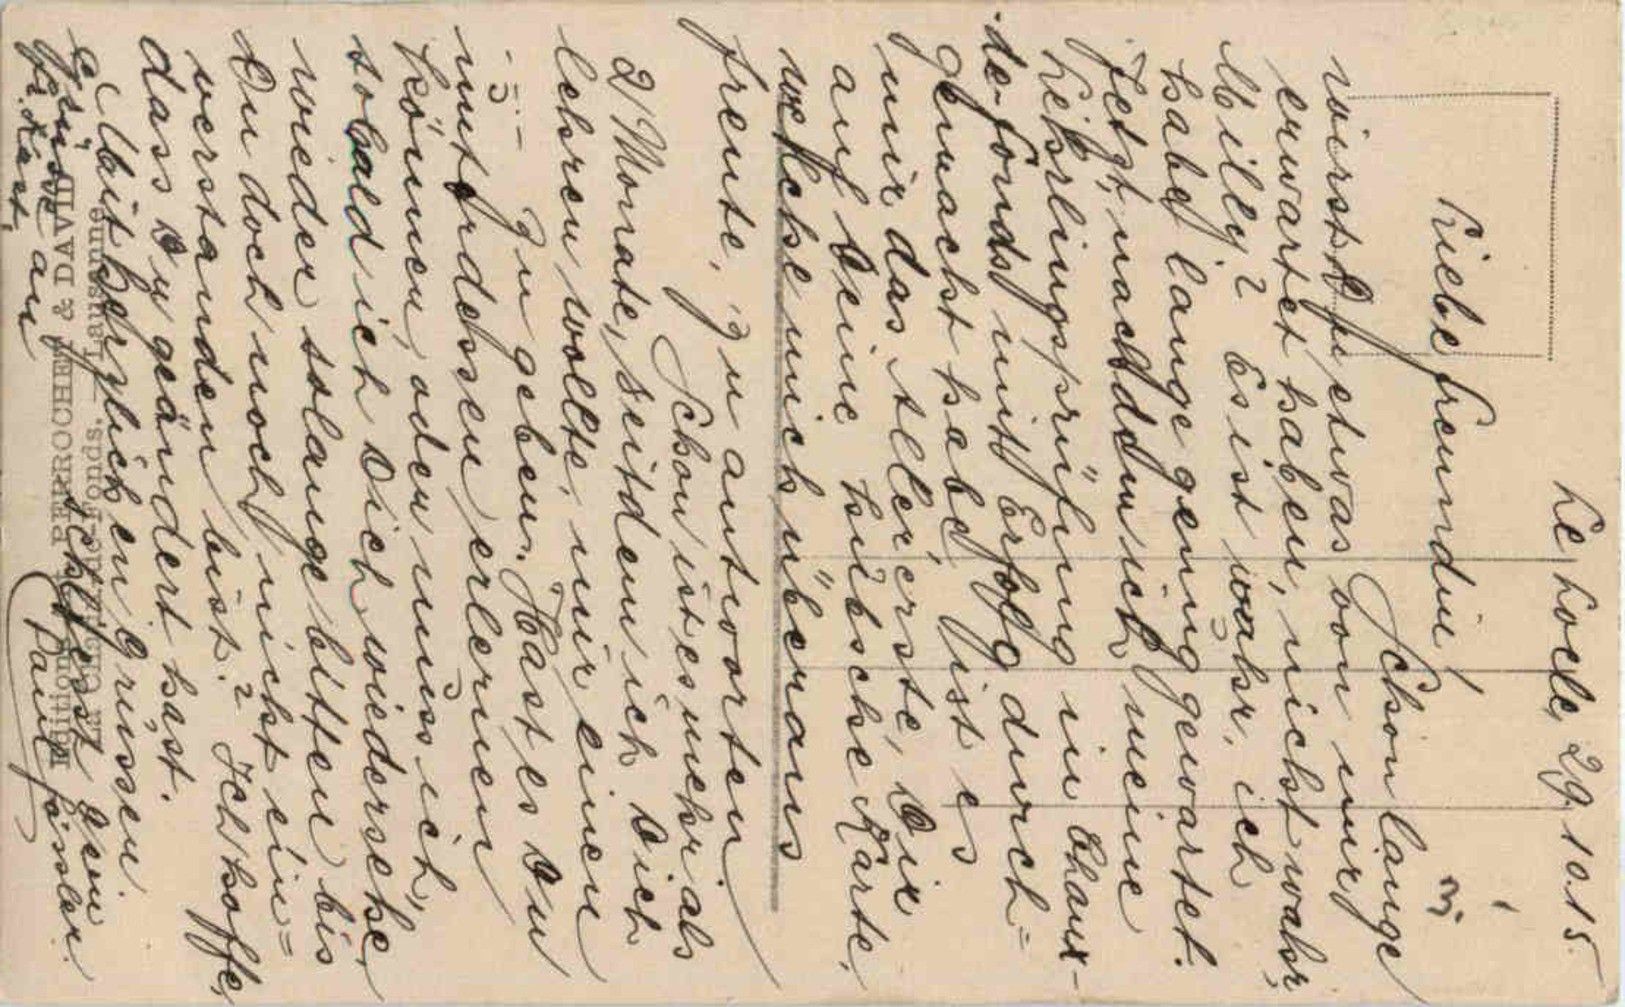 Le Locle, 29.10.15.
Liebe Freundin!
Schon lange
wirst Du etwas von mir
erwartet haben, nicht wahr,
Milly? Es ist wahr, ich
habe lange genug gewartet.
Jetzt, nachdem ich meine
Lehrlingsprüfung in Chaux-
de-fonds mit Erfolg durch=
gemacht habe, ist es
mir das Allererste, Dir
auf Deine hübsche Karte,
welche mich überaus
freute, zu antworten.
Schon ist es mehr als
2 Monate, seitdem ich Dich
lehren wollte, mir einen
zu geben. Hast es Du
unterdessen erlernen
können, oder muss ich,
sobald ich Dich wiedersehe,
wieder solange bitten bis
Du doch noch nicht ein=
verstanden bist.? Ich hoffe,
dass Du geändert hast.
Mit herzlichen Grüssen
schliesst Dein
Paul Fässler.
Grüsse an
Edition PERROCHET & DAVID
La Chaux-de-Fonds. — Lausanne